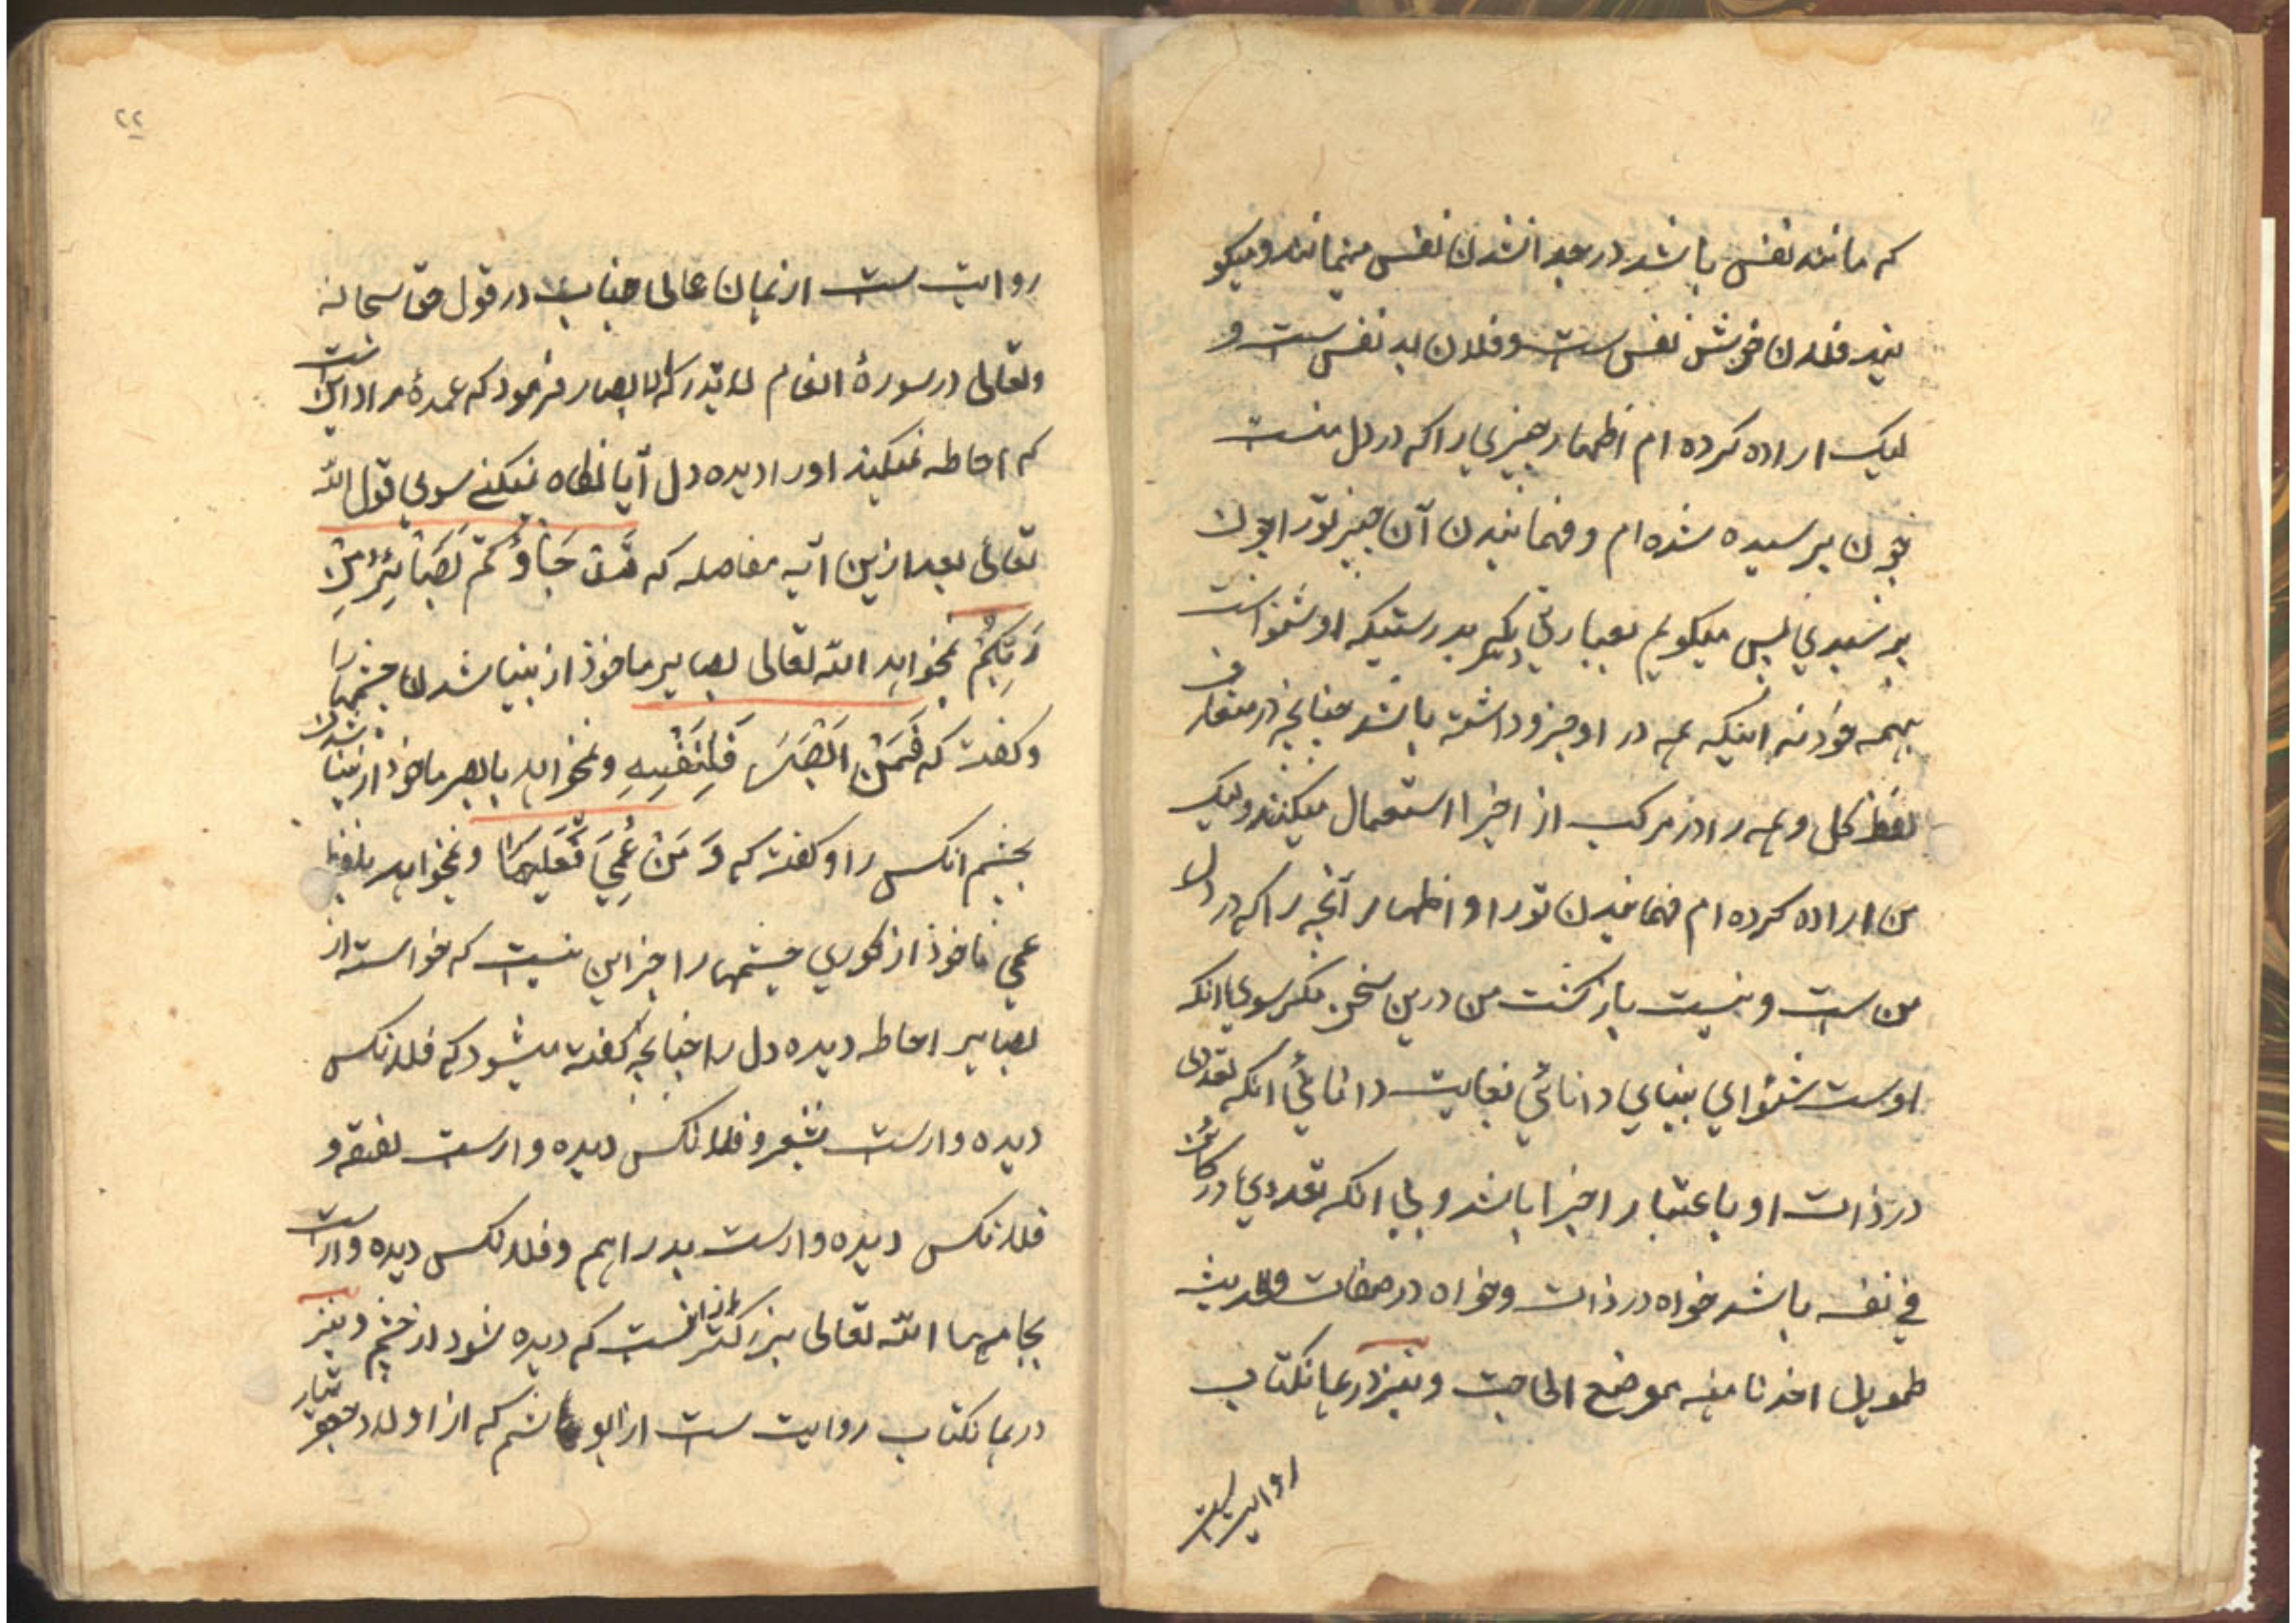 که مانند نفس باشد در جدا شدن نفس مینمانند و میکو
نید فلان خوش نفس ست و فلان بد نفس ست و
لیک اراده کرده ام اظهار چیزی را که در دل منست
چون پرسیده شده ام و فهمانیدن آن چیز تورا چون
پرسیدی پس میکویم بعبارتی دیکر بدرستیکه او شنواست
بهمه خود نه اینکه همه در او جزو داشته باشد چنانچه در متعارف
لفظ کل و همه را در مرکب از اجزا استعمال میکنند و لیک
من اراده کرده ام فهمانیدن تورا و اظهار آنچه را که در دل
من ست و نیست بازکشت من درین سخن مکر سوی انکه
اوست شنوای بینای دانائی بغایت دانائی انکه تعددی
در ذات او باعتبار اجزا باشد و بی انکه تعددی در کائن
فی نفسه باشد خواه در ذات و خواه در صفات والحدیث
طویل اخذنا منه موضع الحاجت و نیز در همانکتاب
روایت ست
۲۲
روایت ست از همان عالی جناب ع در قول حق سبحانه
وتعالی در سورهٔ انعام لا تدرکه الابصار فرمود که عمدهٔ مراد اینست
که احاطه نمیکند اورا دیده دل آیا نکاه نمیکنے سوی قول الله
تعالی بعد ازین آیه بفاصله که قَدْ جَاؤُكُمْ بَصَائِرُ مِنْ
رَبِّكُمْ نمیخواهد الله تعالی بصایر ماخوذ از بینا شدن چشمها را
و کفت که فَمَنْ اَبْصَرَ فَلِنَفْسِهِ و نمیخواهد بابصر ماخوذ از بینا شدن
بچشم انکس را و کفت که وَ مَنْ عُمِيَ فَعَلَيهَا و نمیخواهد بلفظ
عمی ماخوذ از کوری چشمها را جز این نیست که خواسته از
بصایر احاطه دیده دل را چنانچه کفته میشود که فلانکس
دیده وارست بشعر و فلانکس دیده وارست بفقه و
فلانکس دیده وارست بدراهم و فلانکس دیده وارست
بجامها الله تعالی بزرکتر از انست که دیده شود از چشم و نیز
در همانکتاب روایت ست از ابو هاشم که از اولاد جعفر طیار